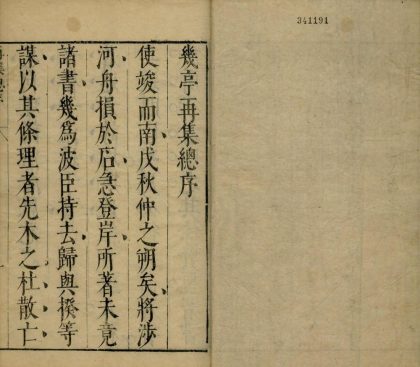 幾亭再集總序
使竣而南戊秋仲之朔矣將涉
河舟損於石急登岸所著未竟
諸書幾為波臣持去歸與揆等
謀以其條理者先木之杜散亡
341191